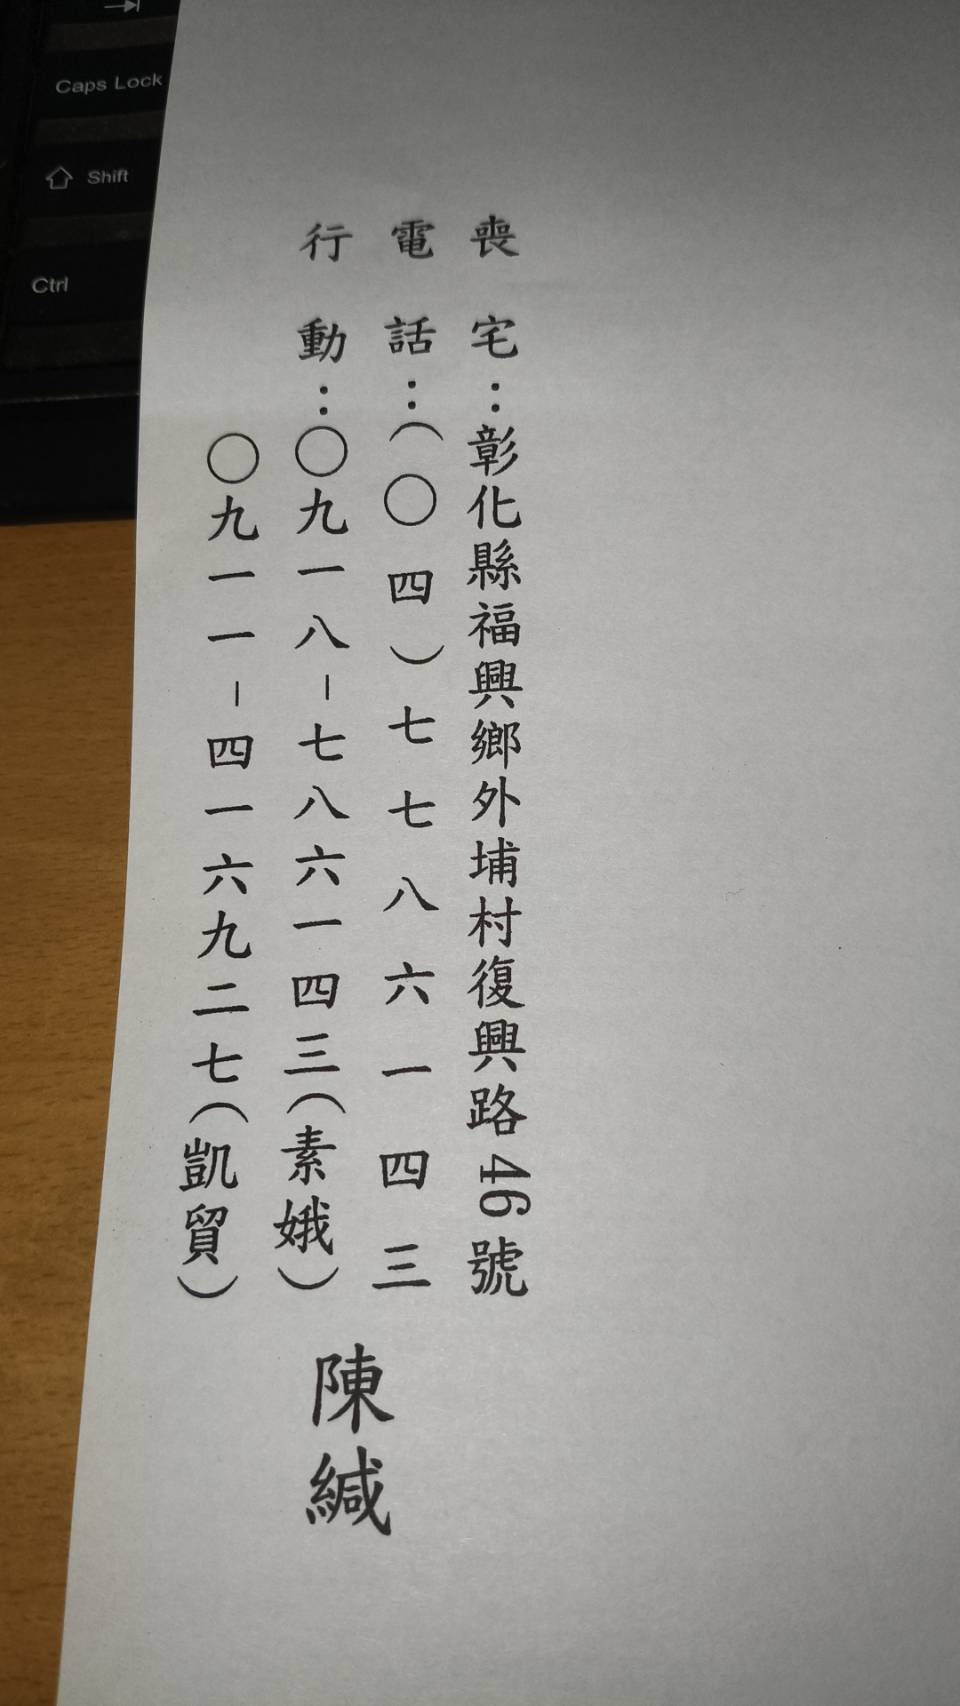 喪宅：彰化縣福興鄉外埔村復興路46號
電話：（〇四）七七八六一四三
行動：〇九一八－七八六一四三（素娥）
〇九一一－四一六九二七（凱貿）
陳緘
Caps Lock
Shift
Ctrl